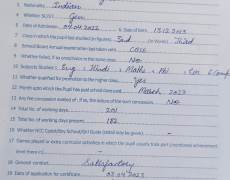 Nationality Indian
4 Whether SC/ST Gen
5 Date of Admission 04.04.2022
Class in which the pupil last studied (in figures) 3rd (in Words) Third
8 School/Board Annual examination last taken with CBSE
9 Whether failed, if so once/twice in the same class No
10 Subjects Studied: Eng, Hindi, Maths
11 Whether qualified for promotion to the higher class Yes
12 Month upto which the Pupil has paid school dues March 2023
13 Any Fee concession availed of, if so, the nature of the such concession No
14 Total No. of working days 201
15 Total No. of working days present 182
16 Whether NCC Cadet/Boy Scout/Girl Guide (detail may be given)
17 Games played or extra curricular activities in which the pupil usually took part (mentioned achievement
level there in)
18 General conduct Satisfactory
19 Date of application for certificate 03.04.2023